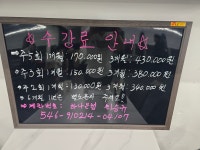 ☆수강료 안내☆
※주5회 1개월 170,000원 3개월: 430,000원
※주3회 1개월 150,000원 3개월: 380,000원
※주2회 1개월 130,000원 3개월: 340,000원
※계좌번호: 하나은행
546-910214-04107